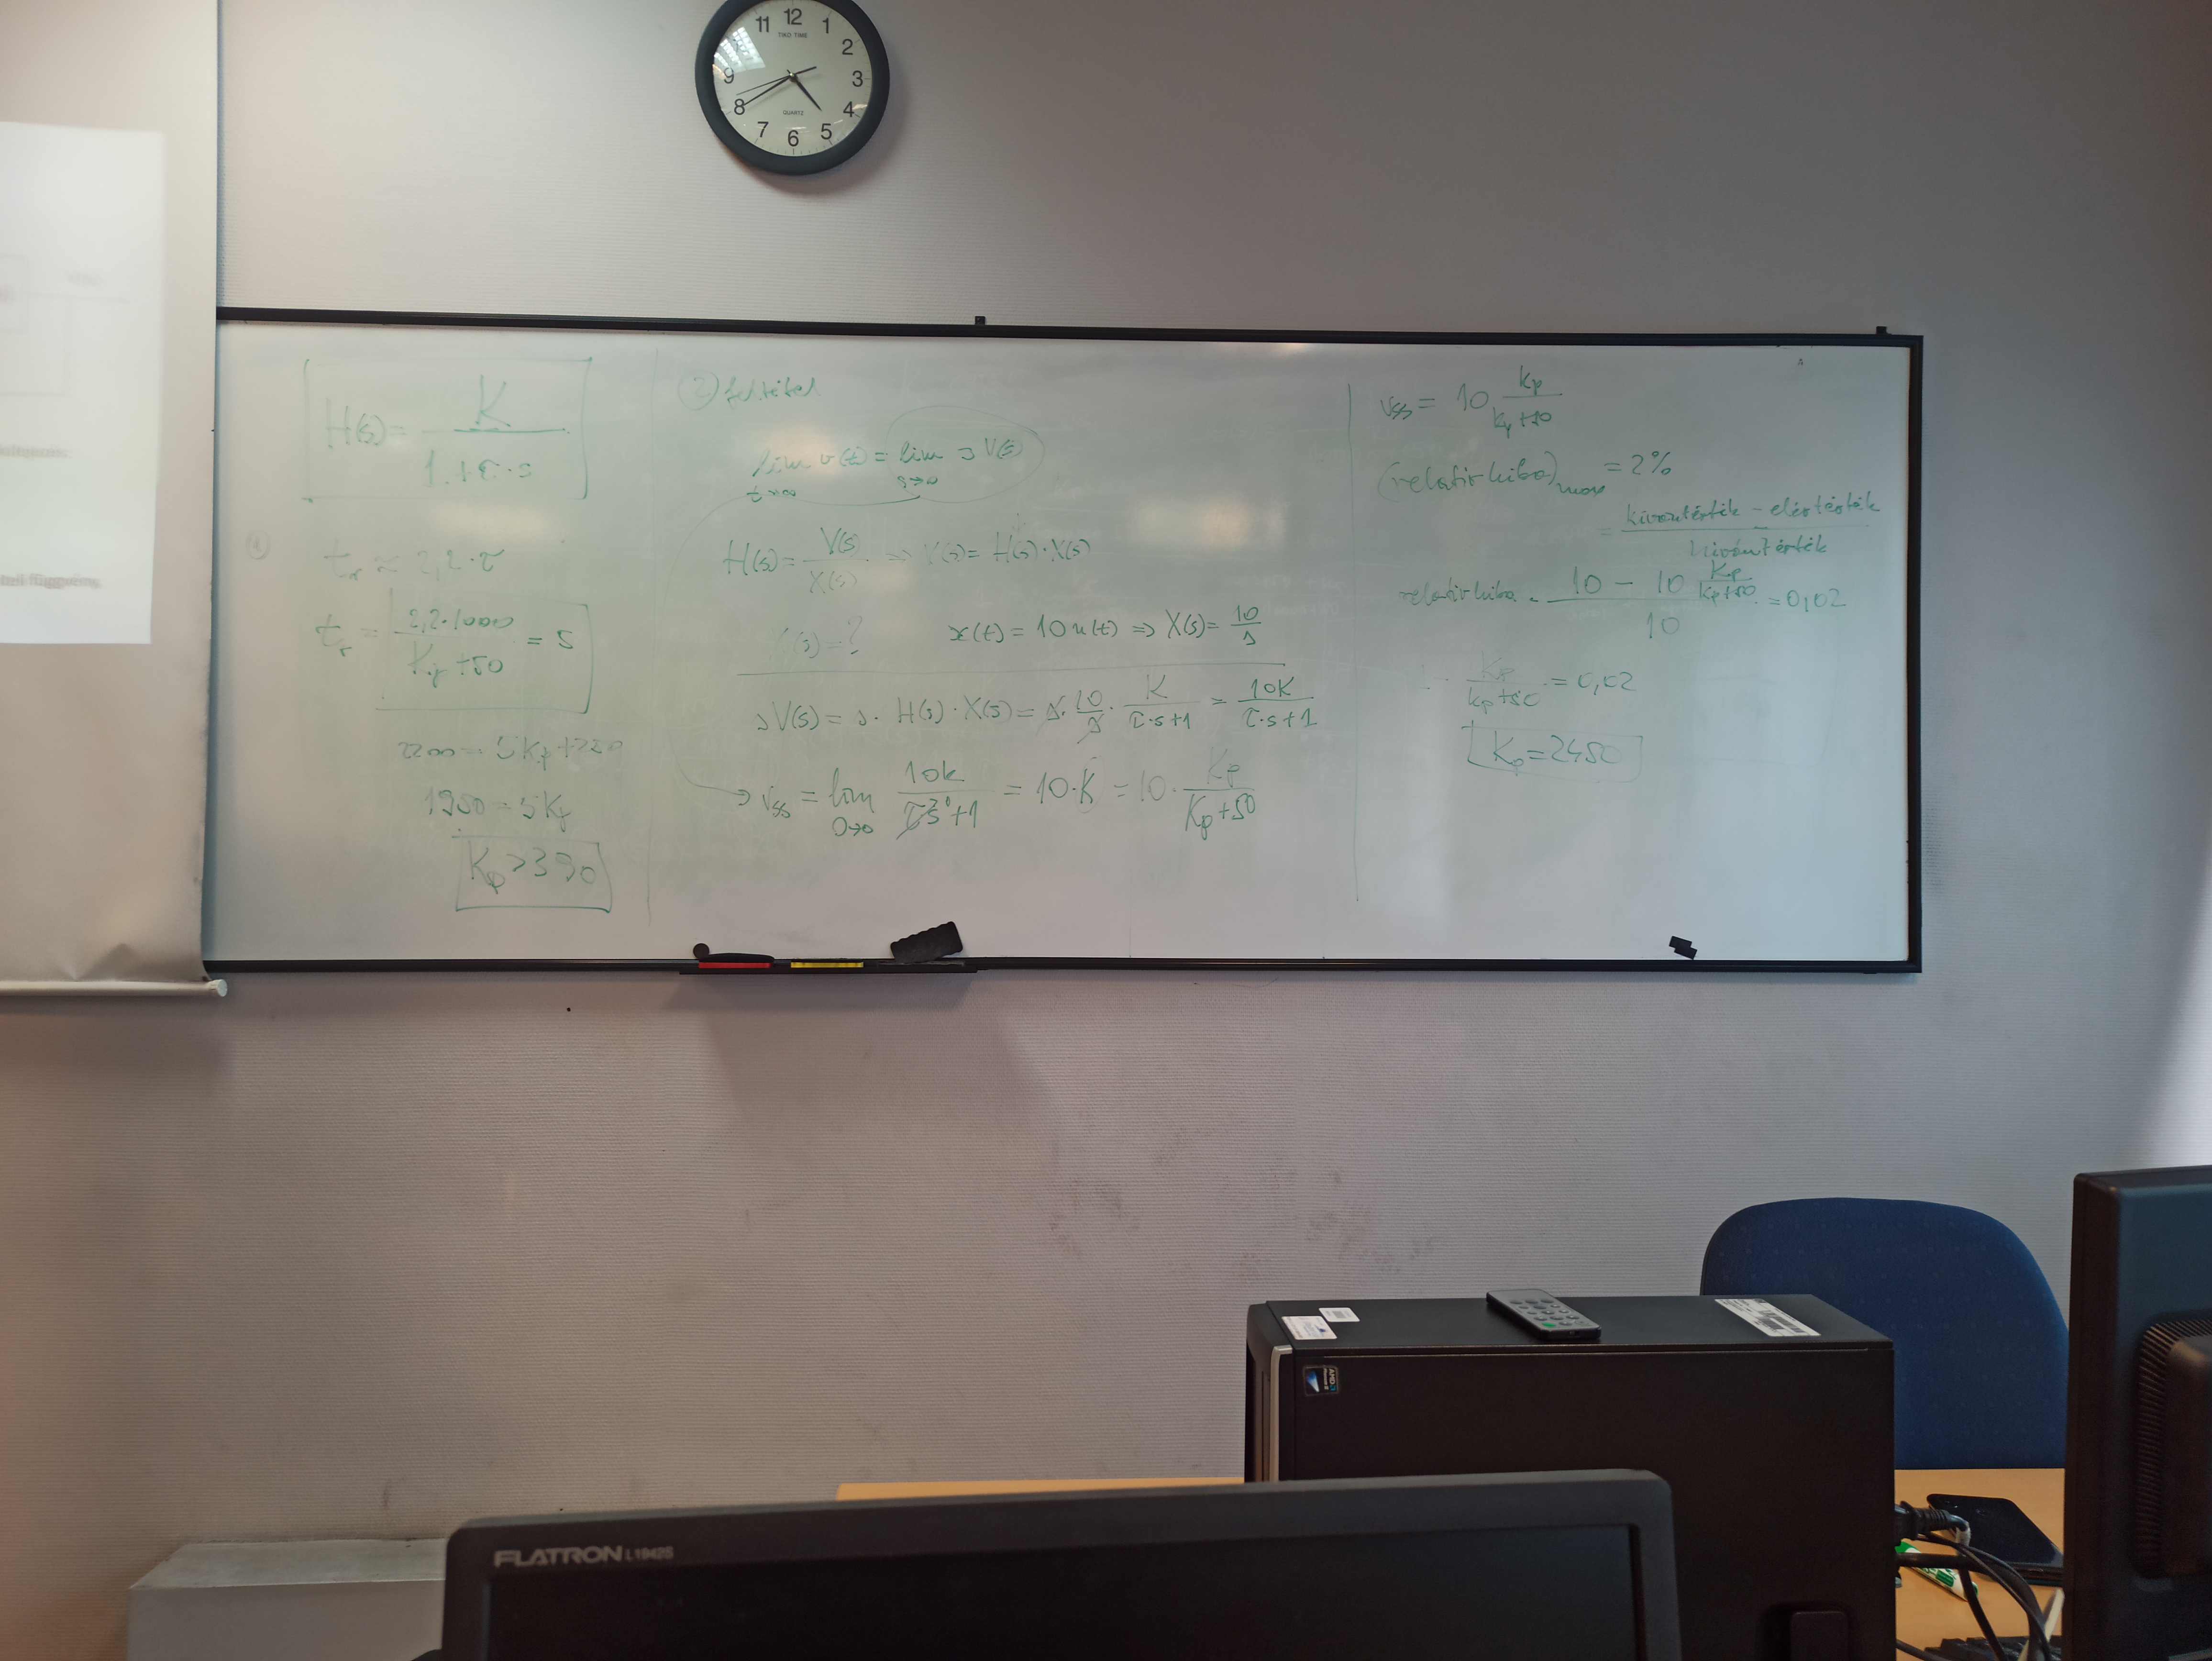 11 12 1
2
9 3
8 4
7 6 5
TIKO TIME
QUARTZ
H(s) = K / (1 + τ·s)
①
tᵣ ≈ 2,2·τ
tᵣ = 2,2·1000 / (Kp+50) = 5
2200 = 5Kp+250
1950 = 5Kp
Kp > 390
② feltétel
lim t→∞ v(t) = lim s→0 sV(s)
H(s) = V(s) / X(s) ⇒ V(s) = H(s)·X(s)
V(s) = ? x(t) = 10u(t) ⇒ X(s) = 10/s
sV(s) = s·H(s)·X(s) = s·10/s·K/(τ·s+1) = 10K/(τ·s+1)
→ vss = lim 0→0 10k/(τs+1) = 10·K = 10·Kp/(Kp+50)
vss = 10 kp/(kp+50)
(relatív hiba)max = 2%
= kívántérték - elértérték / kívántérték
relatív hiba = (10 - 10 Kp/(Kp+50)) / 10 = 0,02
Kp/(kp+50) = 0,02
Kp = 2450
FLATRON L1942S
AMD